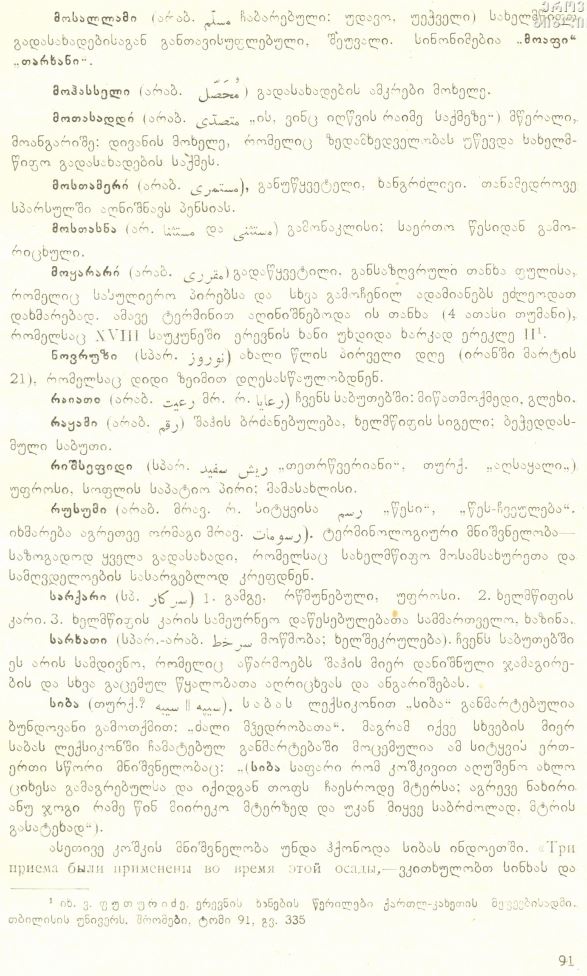 მოსალლამი (არაბ. مسلّم ჩაბარებული: უდავო, უეჭველი) სახელმწიფო
გადასახადებისაგან განთავისუფლებული, შეუვალი. სინონიმებია „მოაფი“
„თარხანი“.
მოჰასსელი (არაბ. مُحَصّل) გადასახადების ამკრები მოხელე.
მოთასადდი (არაბ. متصدّى „ის, ვინც იღწვის რაიმე საქმეზე“) მწერალი,
მოანგარიშე; დივანის მოხელე, რომელიც ზედამხედველობას უწევდა სახელმ-
წიფო გადასახადების საქმეს.
მოსთამერი (არაბ. مستمرى), განუწყვეტელი, ხანგრძლივი. თანამედროვე
სპარსულში აღნიშნავს პენსიას.
მოსთასნა (არ. مستثنا და مستثنى) გამონაკლისი; საერთო წესიდან გამო-
რიცხული.
მოყარარი (არაბ. مقررى) გადაწყვეტილი, განსაზღვრული თანხა ფულისა,
რომელიც სასულიერო პირებსა და სხვა გამოჩენილ ადამიანებს ეძლეოდათ
დახმარებად. ამავე ტერმინით აღინიშნებოდა ის თანხა (4 ათასი თუმანი),
რომელსაც XVIII საუკუნეში ერევნის ხანი უხდიდა ხარკად ერეკლე II¹.
ნოვრუზი (სპარ. نوروز) ახალი წლის პირველი დღე (ირანში მარტის
21), რომელსაც დიდი ზეიმით დღესასწაულობდნენ.
რაიათი (არაბ. رعيت მრ. რ. رعايا) ჩვენს საბუთებში: მიწათმოქმედი, გლეხი.
რაყამი (არაბ. رقم) შაჰის ბრძანებულება, ხელმწიფის სიგელი; ბეჭედდას-
მული საბუთი.
რიშსეფიდი (სპარ. ريش سفيد „თეთრწვერიანი“, თურქ. „აღსაყალი„)
უფროსი, სოფლის საპატიო პირი; მამასახლისი.
რუსუმი (არაბ. მრავ. რ. სიტყვისა رسم „წესი“, „წეს-ჩვეულება“.
იხმარება აგრეთვე ორმაგი მრავ. رسومات). ტერმინოლოგიური მნიშვნელობა—
საზოგადოდ ყველა გადასახადი, რომელსაც სახელმწიფო მოსამსახურეთა და
სამღვდელოების სასარგებლოდ კრეფდნენ.
სარქარი (სპ. سركار) 1. გამგე, რწმუნებული, უფროსი. 2. ხელმწიფის
კარი. 3. ხელმწიფის კარის სამეურნეო დაწესებულებათა სამმართველო, ხაზინა.
სარხათი (სპარ.-არაბ. سرخط მოწმობა; ხელშეკრულება). ჩვენს საბუთებში
ეს არის სამდივნო, რომელიც აწარმოებს შაჰის მიერ დანიშნული ჯამაგირე-
ბის და სხვა გაცემულ წყალობათა აღრიცხვას და ანგარიშებას.
სიბა (თურქ.? سيبه ॥ سيپه). საბას ლექსიკონით „სიბა“ განმარტებულია
ბუნდოვანი გამოთქმით: „ძალი მჴედრობათა“. მაგრამ იქვე სხვების მიერ
საბას ლექსიკონში ჩამატებულ განმარტებაში მოცემულია ამ სიტყვის ერთ-
ერთი სწორი მნიშვნელობაც: „(სიბა საფარი რომ კოშკივით აღუშენო ახლო
ციხესა გამაგრებულსა და იქიდგან თოფს ჩაესროდე მტერსა; აგრევე ნახირი
ანუ ჯოგი რამე წინ მიირეკო მტერზედ და უკან მიყვე საბრძოლად, მტრის
გასატეხად“).
ასეთივე კოშკის მნიშვნელობა უნდა ჰქონოდა სიბას ინდოეთში. «Три
приема были применены во время этой осады,—ვკითხულობთ სინხას და
¹ იხ. ვ. ფუთურიძე, ერევნის ხანების წერილები ქართლ-კახეთის მეფეებისადმი,
თბილისის უნივერს. შრომები, ტომი 91, გვ. 335
91